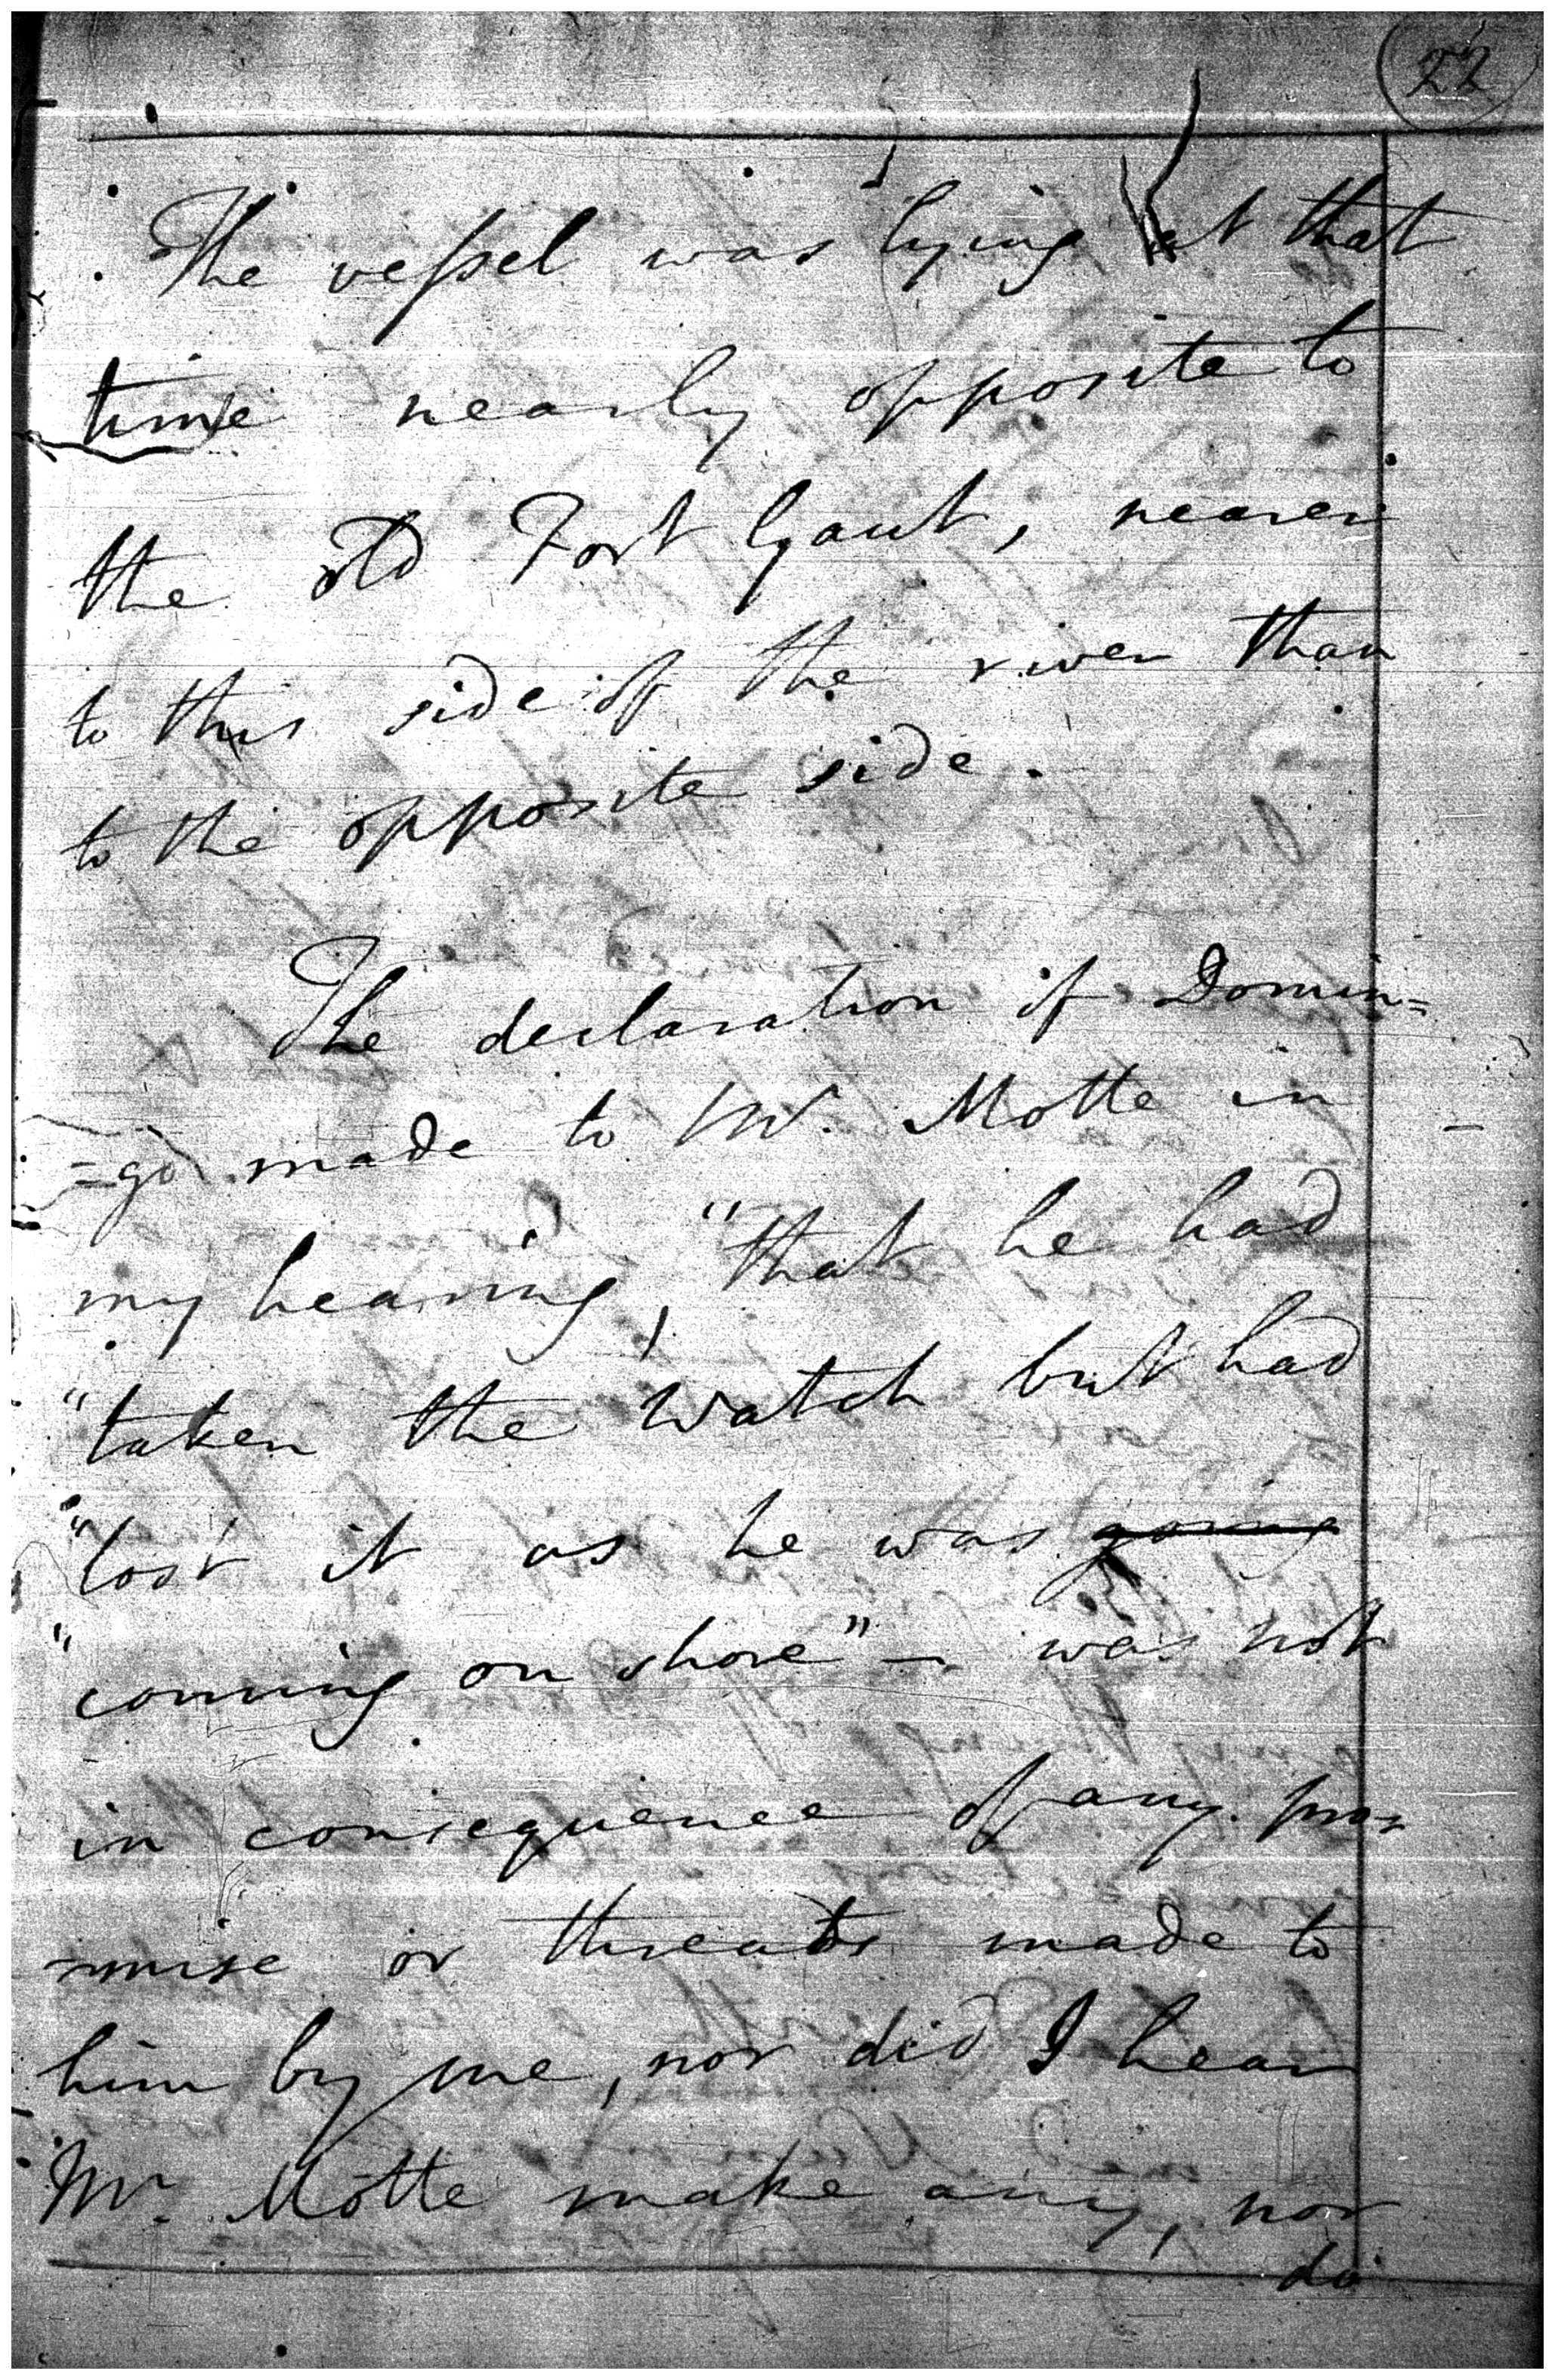 22
The vessel was lying at that
time nearly opposite to
the old Fort Gaut, nearer
to this side of the river than
to the opposite side.
The declaration of Domin=
=go made to Mr. Motte in
my hearing, "that he had
"taken the watch but had
"lost it as he was going
"coming on shore" – was not
in consequence of any pro-
-mise or threats made to
him by me, nor did I hear
Mr. Motte make any, nor
do